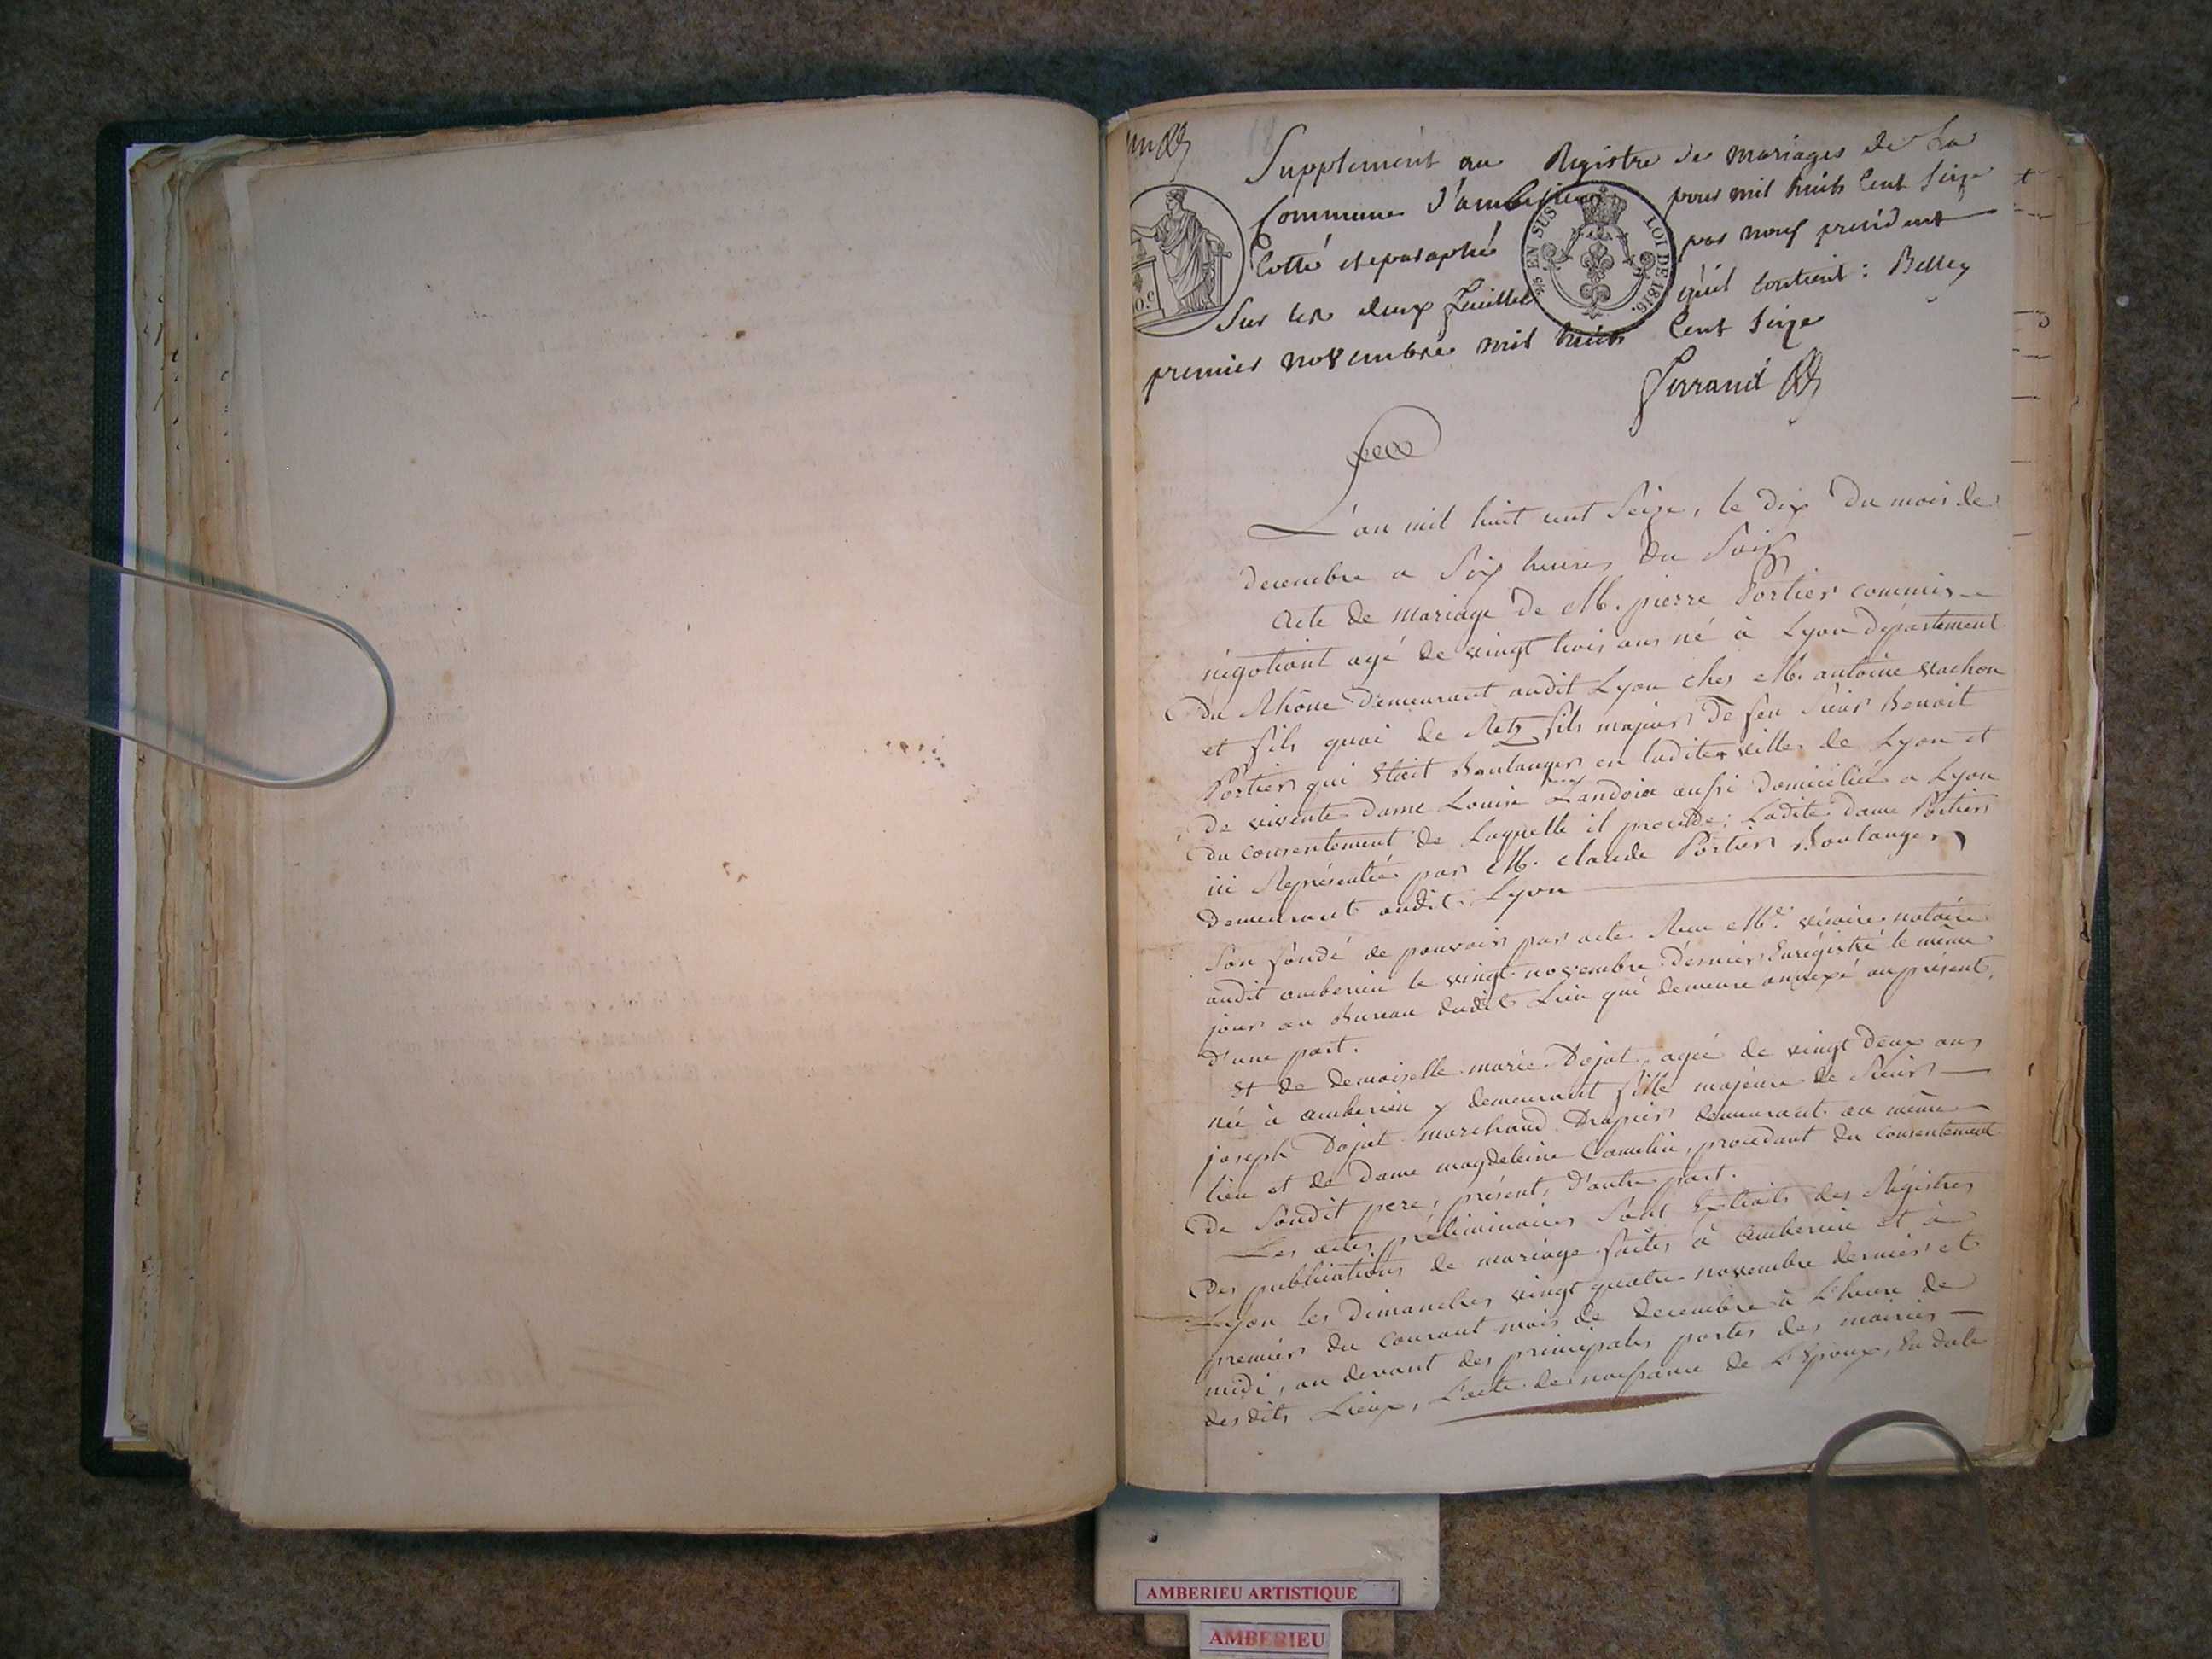 Supplément au Registre de mariages de La
Commune d'amberieu pour mil huit Cent Seize
Cotté et paraphé par nous président
Sur les deux feuillets qu'il contient : Belley
premier novembre mil huit Cent Seize
Ferrand
EN SUS LOI DE 1816.
L'an mil huit cent Seize, le dix du mois de
decembre a Six heures du Soir
Acte de mariage de M. pierre Portier commis
négotiant agé de vingt trois ans né à Lyon département
Du Rhône demeurant audit Lyon ches M. antoine vachon
et fils quai de Retz fils majeur de feu Sieur Benoit
Portier qui étoit Boulanger en ladite ville de Lyon et
de vivente dame Louise Landoin aussi domiciliée a Lyon
du consentement de Laquelle il procede; Ladite dame Portier
ici Représentée par M. claude Portier Boulanger,
Demeurant audit Lyon
Son fondé de pouvoir par acte Reçu Me. notaire
audit amberieu le vingt novembre dernier, Enrégistré le même
jour au Bureau dudit Lieu qui demeure annexé au présent,
d'une part.
Et de demoiselle marie Dojat, agée de vingt deux ans
née à amberieu y demeurant fille majeure de Sieur
joseph Dojat marchand Drapier demeurant au même
lieu et de Dame magdeleine Camelin, procedant du consentement
De Sondit pere, présent, d'autre part.
Les actes préliminaires Sont Extraits des Régistres
Des publications de mariage faites à amberieu et à
Lyon Les Dimanches vingt quatre novembre dernier et
premier du courant mois de decembre à L'heure de
midi, au devant des principales portes des mairies
desdits Lieux, L'acte de naissance de L'Epoux, En date
AMBERIEU ARTISTIQUE
AMBERIEU